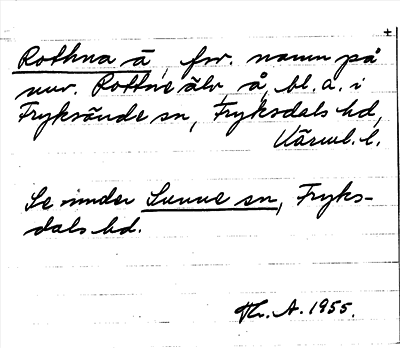 +
Rothna å, fsv. namn på
nuv. Rottne älv, å, bl. a. i
Fryksände sn, Fryksdals hd,
Värml. l.
Se under Sunne sn, Fryks-
dals hd.
Th. A. 1955.